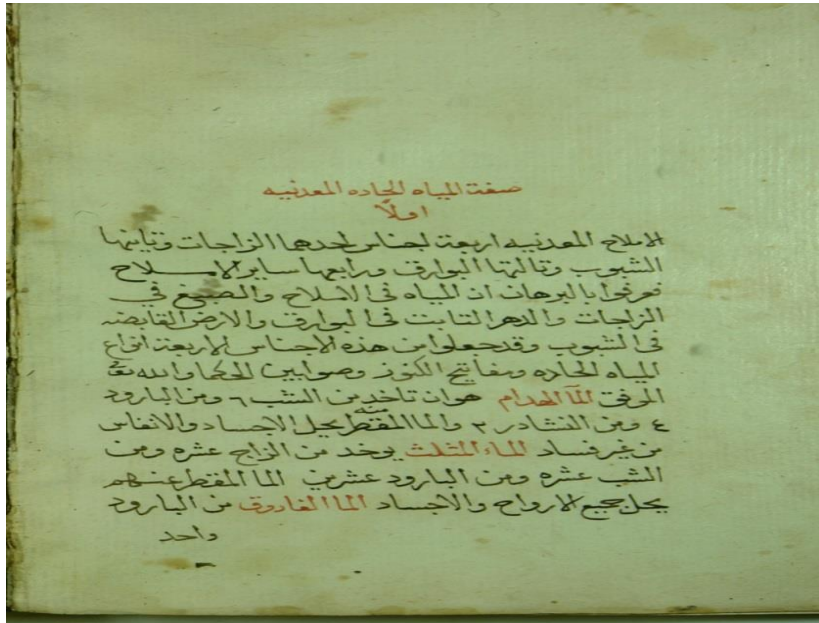 صفة المياه الحاده المعدنيه
اولاً
الاملاح المعدنيه اربعة اجناس احدها الزاجات وثانيها
الشبوب وثالثها البوارق ورابعها ساير الاملاح
فعرفوا بالبرهان ان المياه فى الاملاح والصبغ في
الزاجات والدهر الثابت فى البوارق والارض القابضه
فى الشبوب وقد جعلوا من هذه الاجناس الاربعة انواع
المياه الحاده ومفاتيح الكنوز وصوابين الحكما والله تعا
الموفق المآ الهدام هو ان تاخد من الشب ٦ ومن البارود
٤ ومن النشادر ٣ والما المقطر منه يحل الاجساد والانفاس
من غير فساد الماء المثلث يوخد من الزاج عشره ومن
الشب عشره ومن البارود عشرين الما المقطر عنهم
يحل جميع الارواح والاجساد الما الفاروق من البارود
واحد